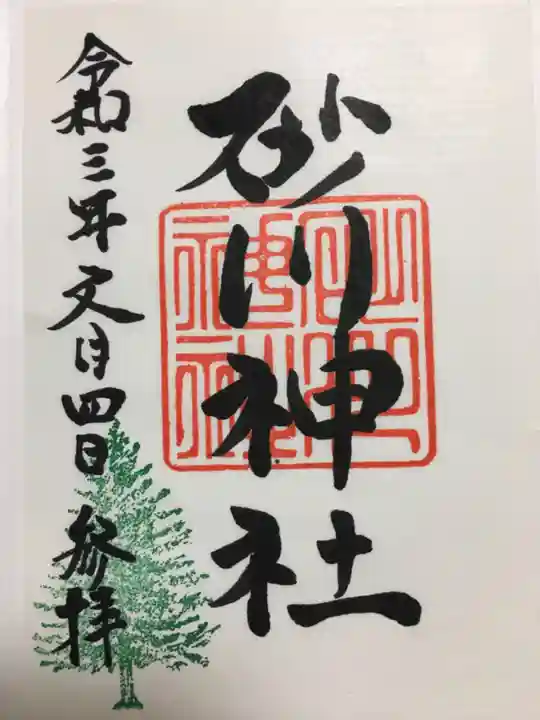 砂川神社
令和三年文月四日 参拝